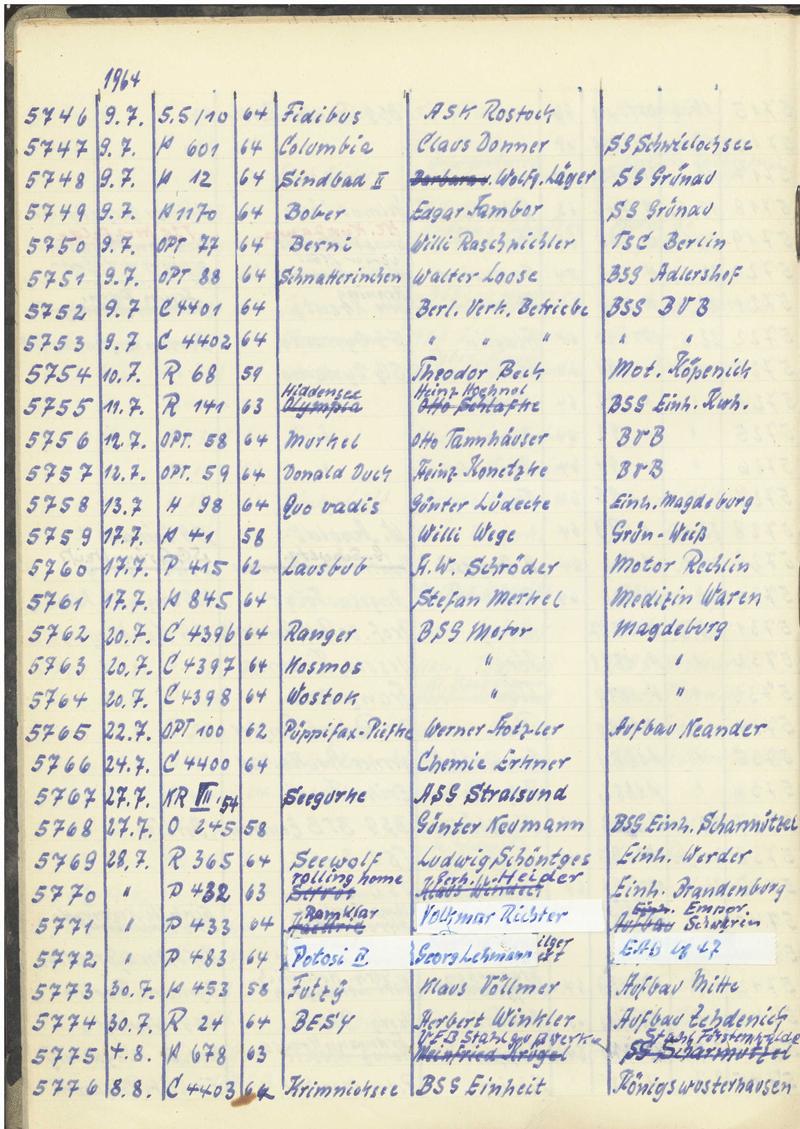 1964
5746 9.7. S.S/10 64 Fidibus ASK Rostock
5747 9.7. P 601 64 Columbia Claus Donner SG Schwielochsee
5748 9.7. P 12 64 Sindbad II Wolfg. Läger SG Grünau
5749 9.7. P 1170 64 Bober Edgar Tambor SG Grünau
5750 9.7. OPT 77 64 Berni Willi Raschpichler TSC Berlin
5751 9.7. OPT 88 64 Schnatterinchen Walter Loose BSG Adlershof
5752 9.7 C 4401 64 Berl. Verk. Betriebe BSG BVB
5753 9.7. C 4402 64 " " " " " "
5754 10.7. R 68 59 Theodor Beck Mot. Köpenick
Hiddensee Heinz Hoehnel
5755 11.7. R 141 63 Olympia Otto Schlafke BSG Einh. Rwh.
5756 12.7. OPT. 58 64 Murkel Otto Tannhäuser BVB
5757 12.7. OPT. 59 64 Donald Duck Heinz Konetzke BVB
5758 13.7 H 98 64 Quo vadis Günter Lüdecke Einh. Magdeburg
5759 17.7. P 41 58 Willi Wege Grün-Weiß
5760 17.7. P 415 62 Lausbub H.W. Schröder Motor Rechlin
5761 17.7. P 845 64 Stefan Merkel Medizin Waren
5762 20.7. C 4396 64 Ranger BSG Motor Magdeburg
5763 20.7. C 4397 64 Kosmos " "
5764 20.7. C 4398 64 Wostok " "
5765 22.7. OPT 100 62 Püppifax-Piefke Werner Hotzler Aufbau Neander
5766 24.7. C 4400 64 Chemie Erkner
5767 27.7. KR VII 54 Seegurke ASG Stralsund
5768 27.7. O 245 58 Günter Neumann BSG Einh. Scharmützel
5769 28.7. R 365 64 Seewolf Ludwig Schöntges Einh. Werder
rolling home Berh. Heider
5770 " P 432 63 Einh. Brandenburg
Ramklar Einh. Empor
5771 " P 433 64 Volkmar Richter Aufbau Schwerin
5772 " P 483 64 Potosi II Georg Lehmann
5773 30.7. P 453 58 Futzy Klaus Völlmer Aufbau Mitte
5774 30.7. R 24 64 BESY Herbert Winkler Aufbau Zehdenick
VEB Stahlgußwerke Stahl Fürstenwalde
5775 4.8. P 678 63 Meinfried Krügel SG Scharmützel
5776 8.8. C 4403 64 Krimnicksee BSG Einheit Königswusterhausen